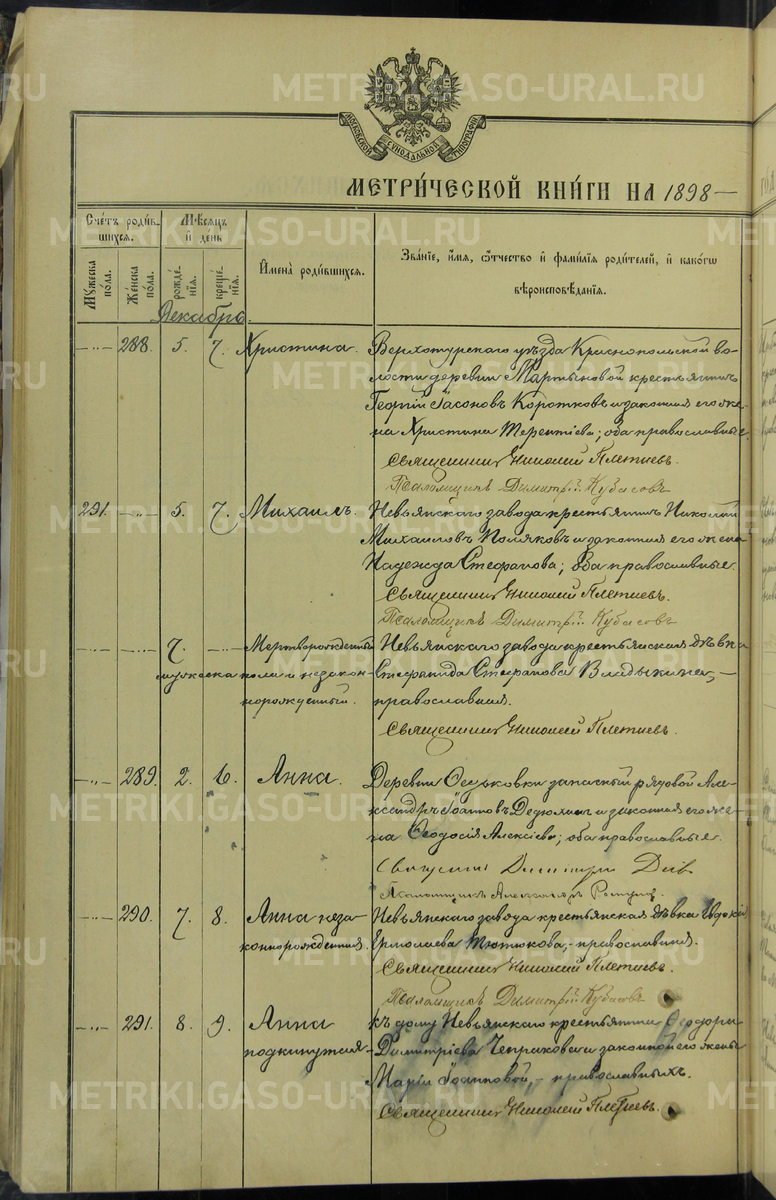 METRIKI.GASO-URAL.RU
МОСКОВСКОЙ СѴНОДАЛЬНОЙ ТИПОГРАФІИ
МЕТРИ́ЧЕСКОЙ КНИ́ГИ НА 1898
Сче́тъ роди́вшихся.
Му́жеска по́ла.
Же́нска по́ла.
Мѣ́сяцъ и҆ день
рожде́нїя.
креще́нїя.
И҆мена̀ роди́вшихся.
Зва́нїе, и҆́мя, ѻ҆́тчество и҆ фами́лїя роди́телей, и҆ како́гѡ
вѣроисповѣ́данїя.
Декабрь.
-„- 288. 5. 7. Христина. Верхотурскаго уѣзда Краснопольской во-
лости деревни Мартьяновой крестьянинъ
Георгій Іасоновъ Коротковъ и законная его же-
на Христина Терентіева; оба православные.
Священникъ Николай Плетневъ.
Псаломщикъ Димитрій Кубасовъ
291. -„- 5. 7. Михаилъ. Невьянскаго завода крестьянинъ Николай
Михаиловъ Поляковъ и законная его жена
Надежда Стефанова; оба православные.
Священникъ Николай Плетневъ.
Псаломщикъ Димитрій Кубасовъ
7. -„- Мертворожденный Невьянскаго завода крестьянская дѣвка
мужеска пола и незакон- Стефанида Стефанова Владыкина,-
норожденный. православная.
Священникъ Николай Плетневъ.
-„- 289. 2. 6. Анна. Деревни Осиновки запасный рядовой Але-
ксандръ Іоанновъ Дедюхинъ и законная его же-
на Ѳеодосія Алексіева; оба православные.
Священникъ Димитрій
Псаломщикъ Александръ
-„- 290. 7. 8. Анна неза- Невьянскаго завода крестьянская дѣвка Евдокія
коннорожденная. Ермолаева Тютюкова,- православная.
Священникъ Николай Плетневъ.
Псаломщикъ Димитрій Кубасовъ
-„- 291. 8. 9. Анна къ дому Невьянскаго крестьянина Ѳеодора
подкинутая- Димитріева Чепракова и законной его жены
Маріи Іоанновой,- православныхъ.
Священникъ Николай Плетневъ.